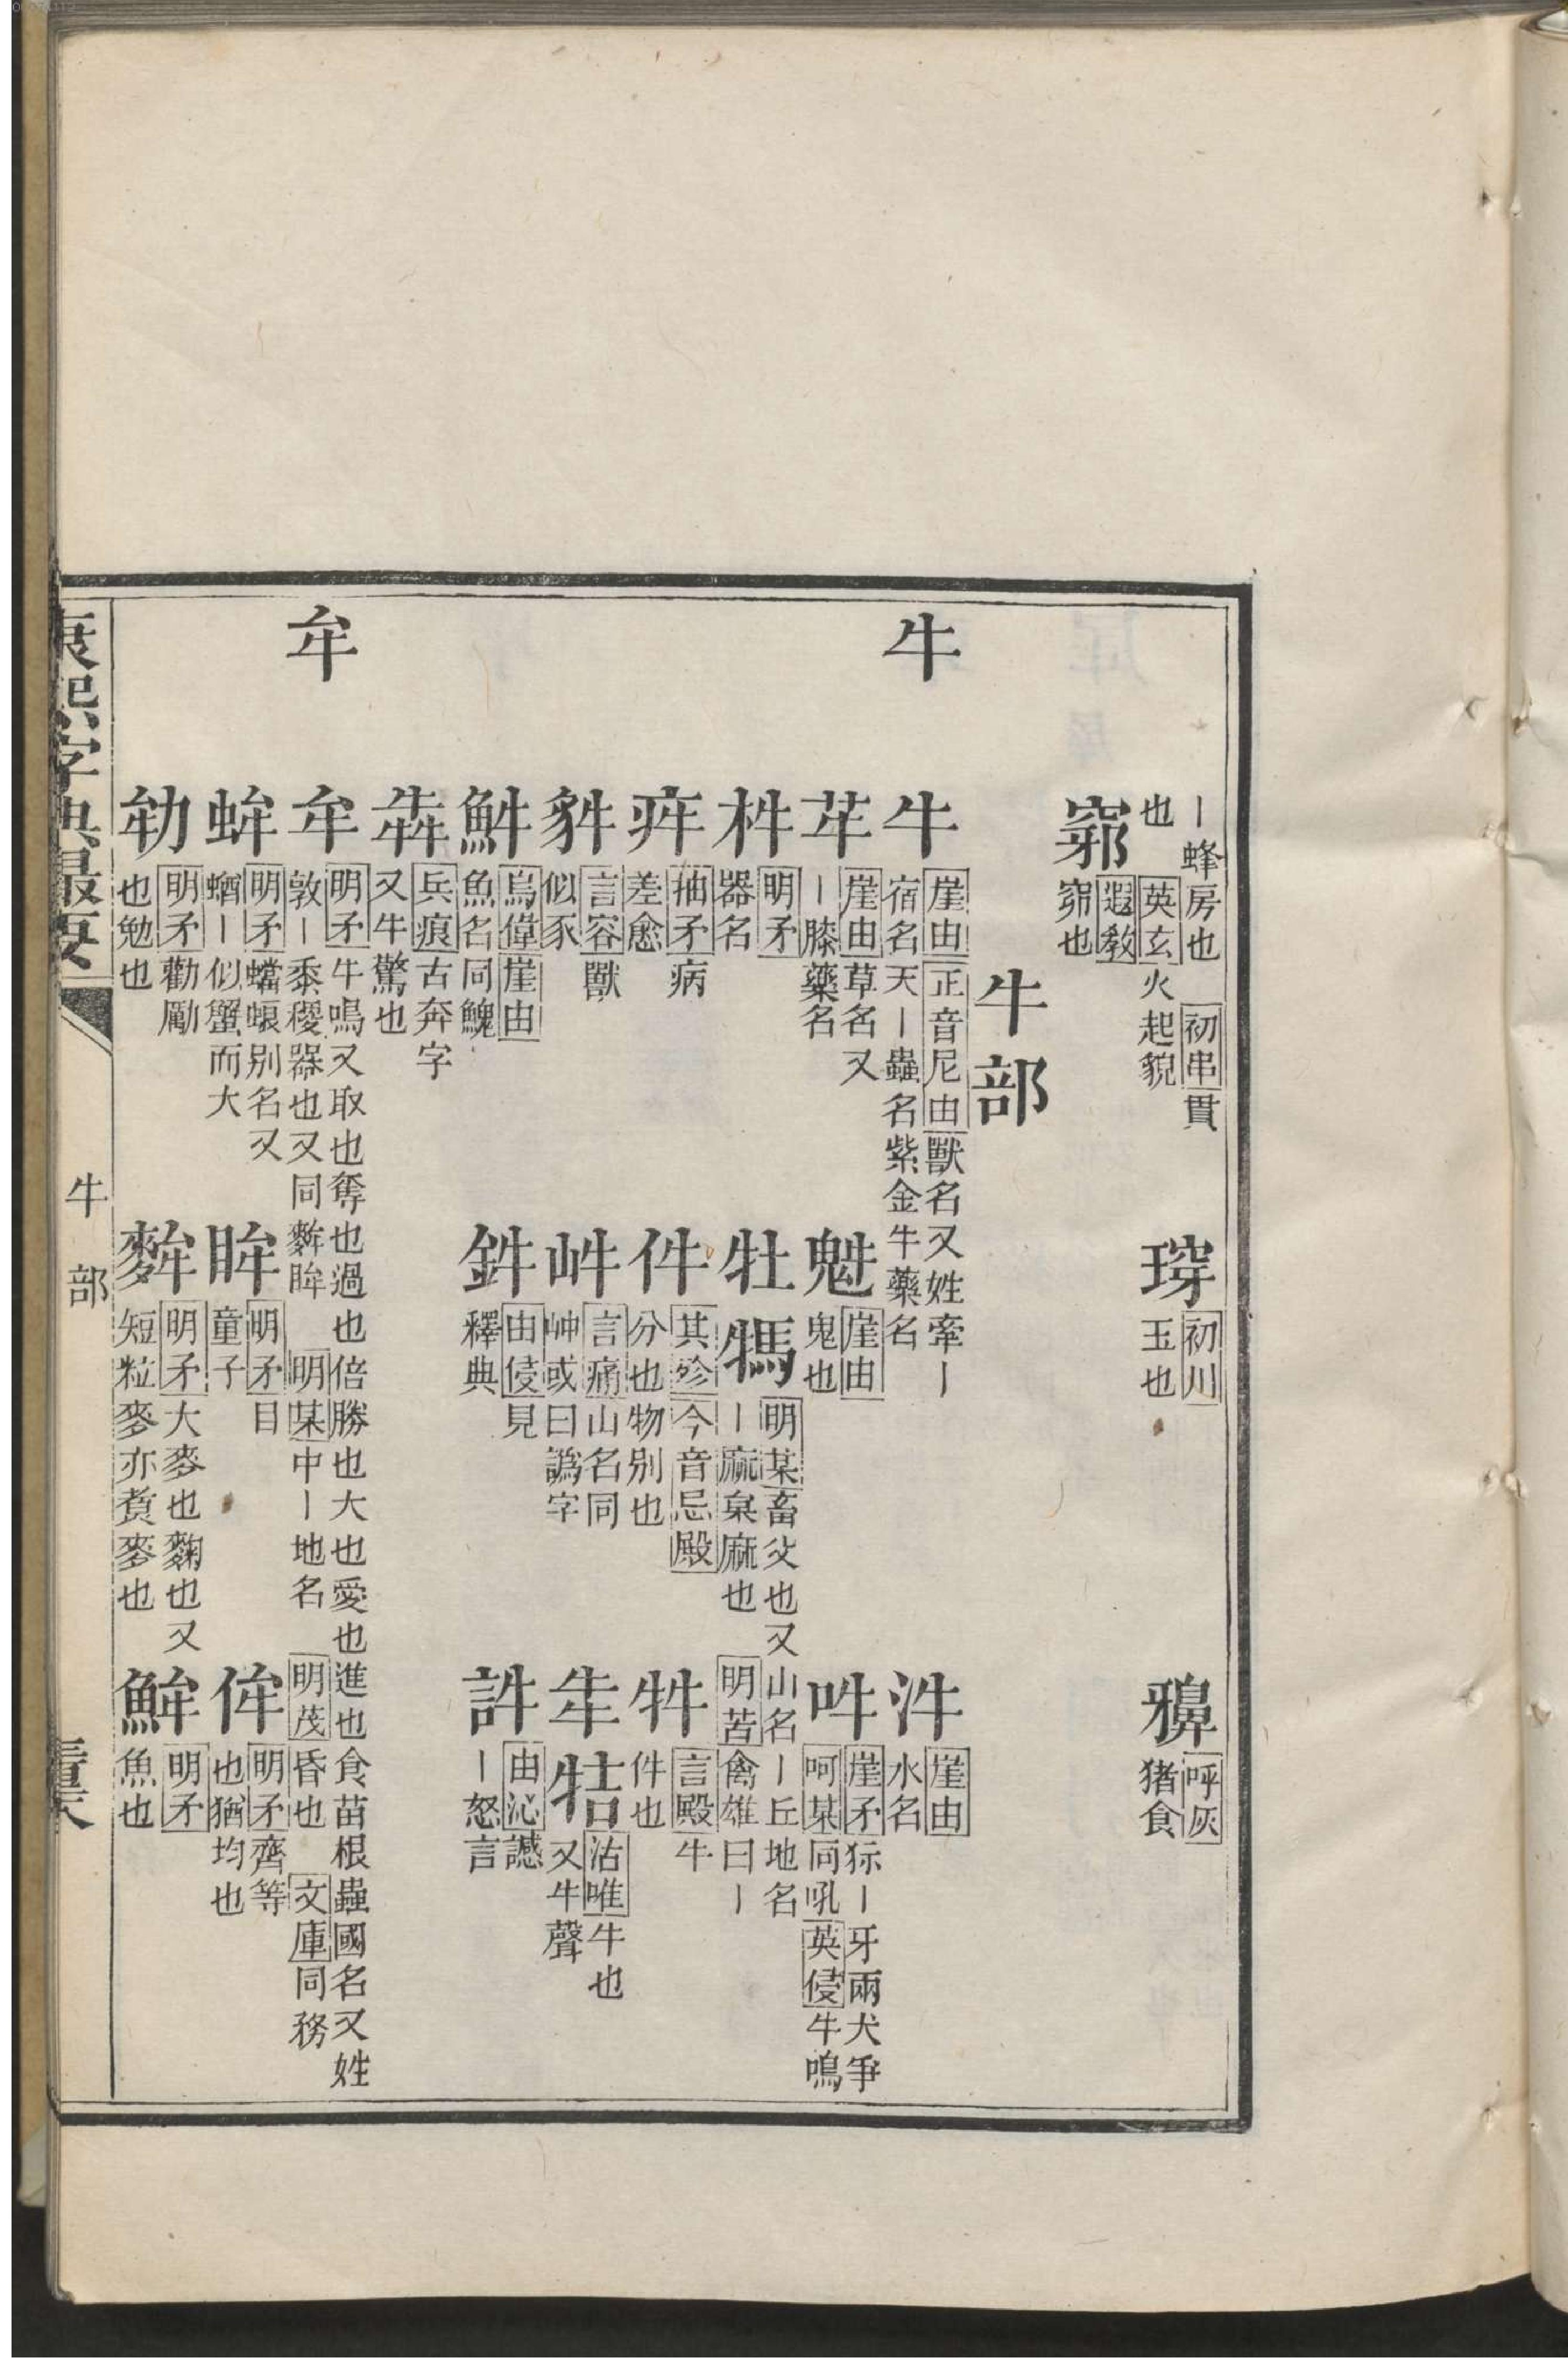 丨蜂房也 初串貫
也 英玄火起貌
瑏 初川玉也
豩 呼灰猪食
窷 遐教窌也
牛部
牛
牛 崖由 正音尼由獸名又姓牽丨
宿名天丨蟲名紫金牛藥名
汼 崖由水名
芉 崖由草名又
丨膝藥名
魁 崖由鬼也
吽 崖矛狋丨牙兩犬爭
呵某同吼英侵牛鳴
杵 明矛器名
牡 𤚩 明某畜父也又山名丨丘地名
丨麻枲麻也 明苦禽雄曰丨
痵 抽矛病差愈
件 其殄 今音忌殿
分也物別也
牪 言殿牛件也
䝅 言容獸似豕
𡵓 言痛山名同
峅或曰譌字
㸪 牯 沽唯牛也
又牛聲
䱁 烏偉 崖由
魚名同鮠
鉡 由侵見釋典
許 由沁讄
丨怒言
犇 兵痕古奔字
又牛驚也
牟
牟 明矛牛鳴又取也奪也過也倍勝也大也愛也進也食苗根蟲國名又姓
敦丨黍稷器也又同麰眸 明某中丨地名 明茂昏也 文庫同務
蛑 明矛蟷蜋别名又
蝤丨似蟹而大
眸 明矛目童子
侔 明矛齊等
也猶均也
劺 明矛勸勵
也勉也
麰 明矛大麥也麴也又
短粒麥亦䝷麥也
鮮 明矛魚也
康熙字典最要
牛部